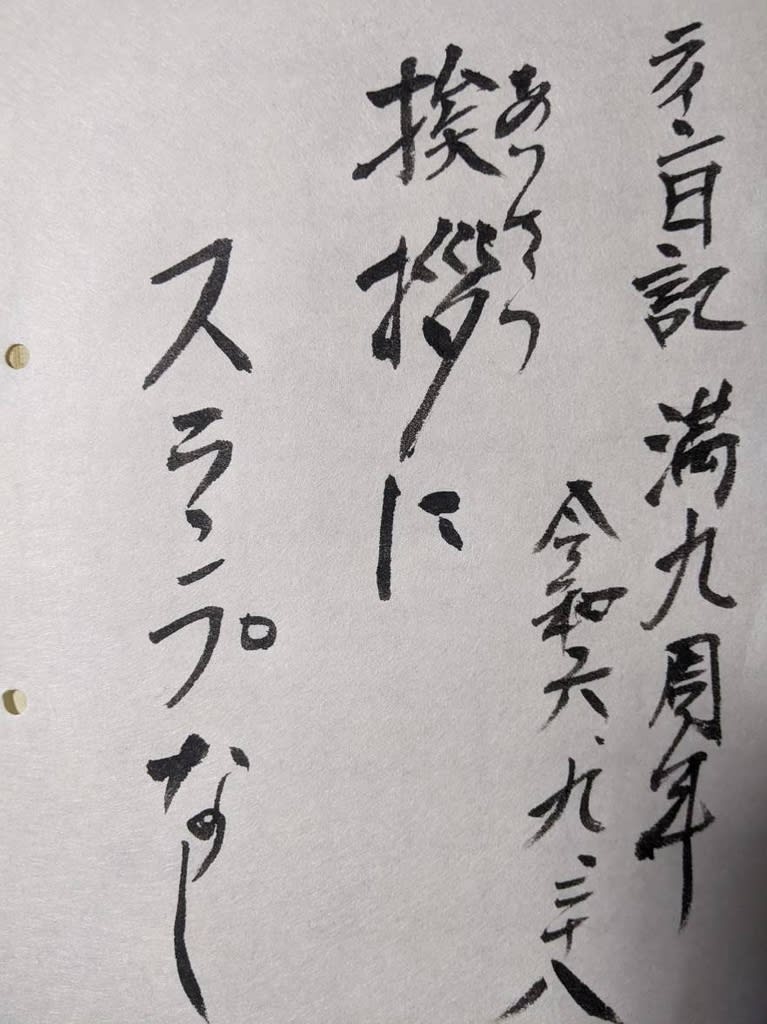 ライン日記 満九周年
令和六、九、二十八
あいさつ
挨拶に
スランプなし